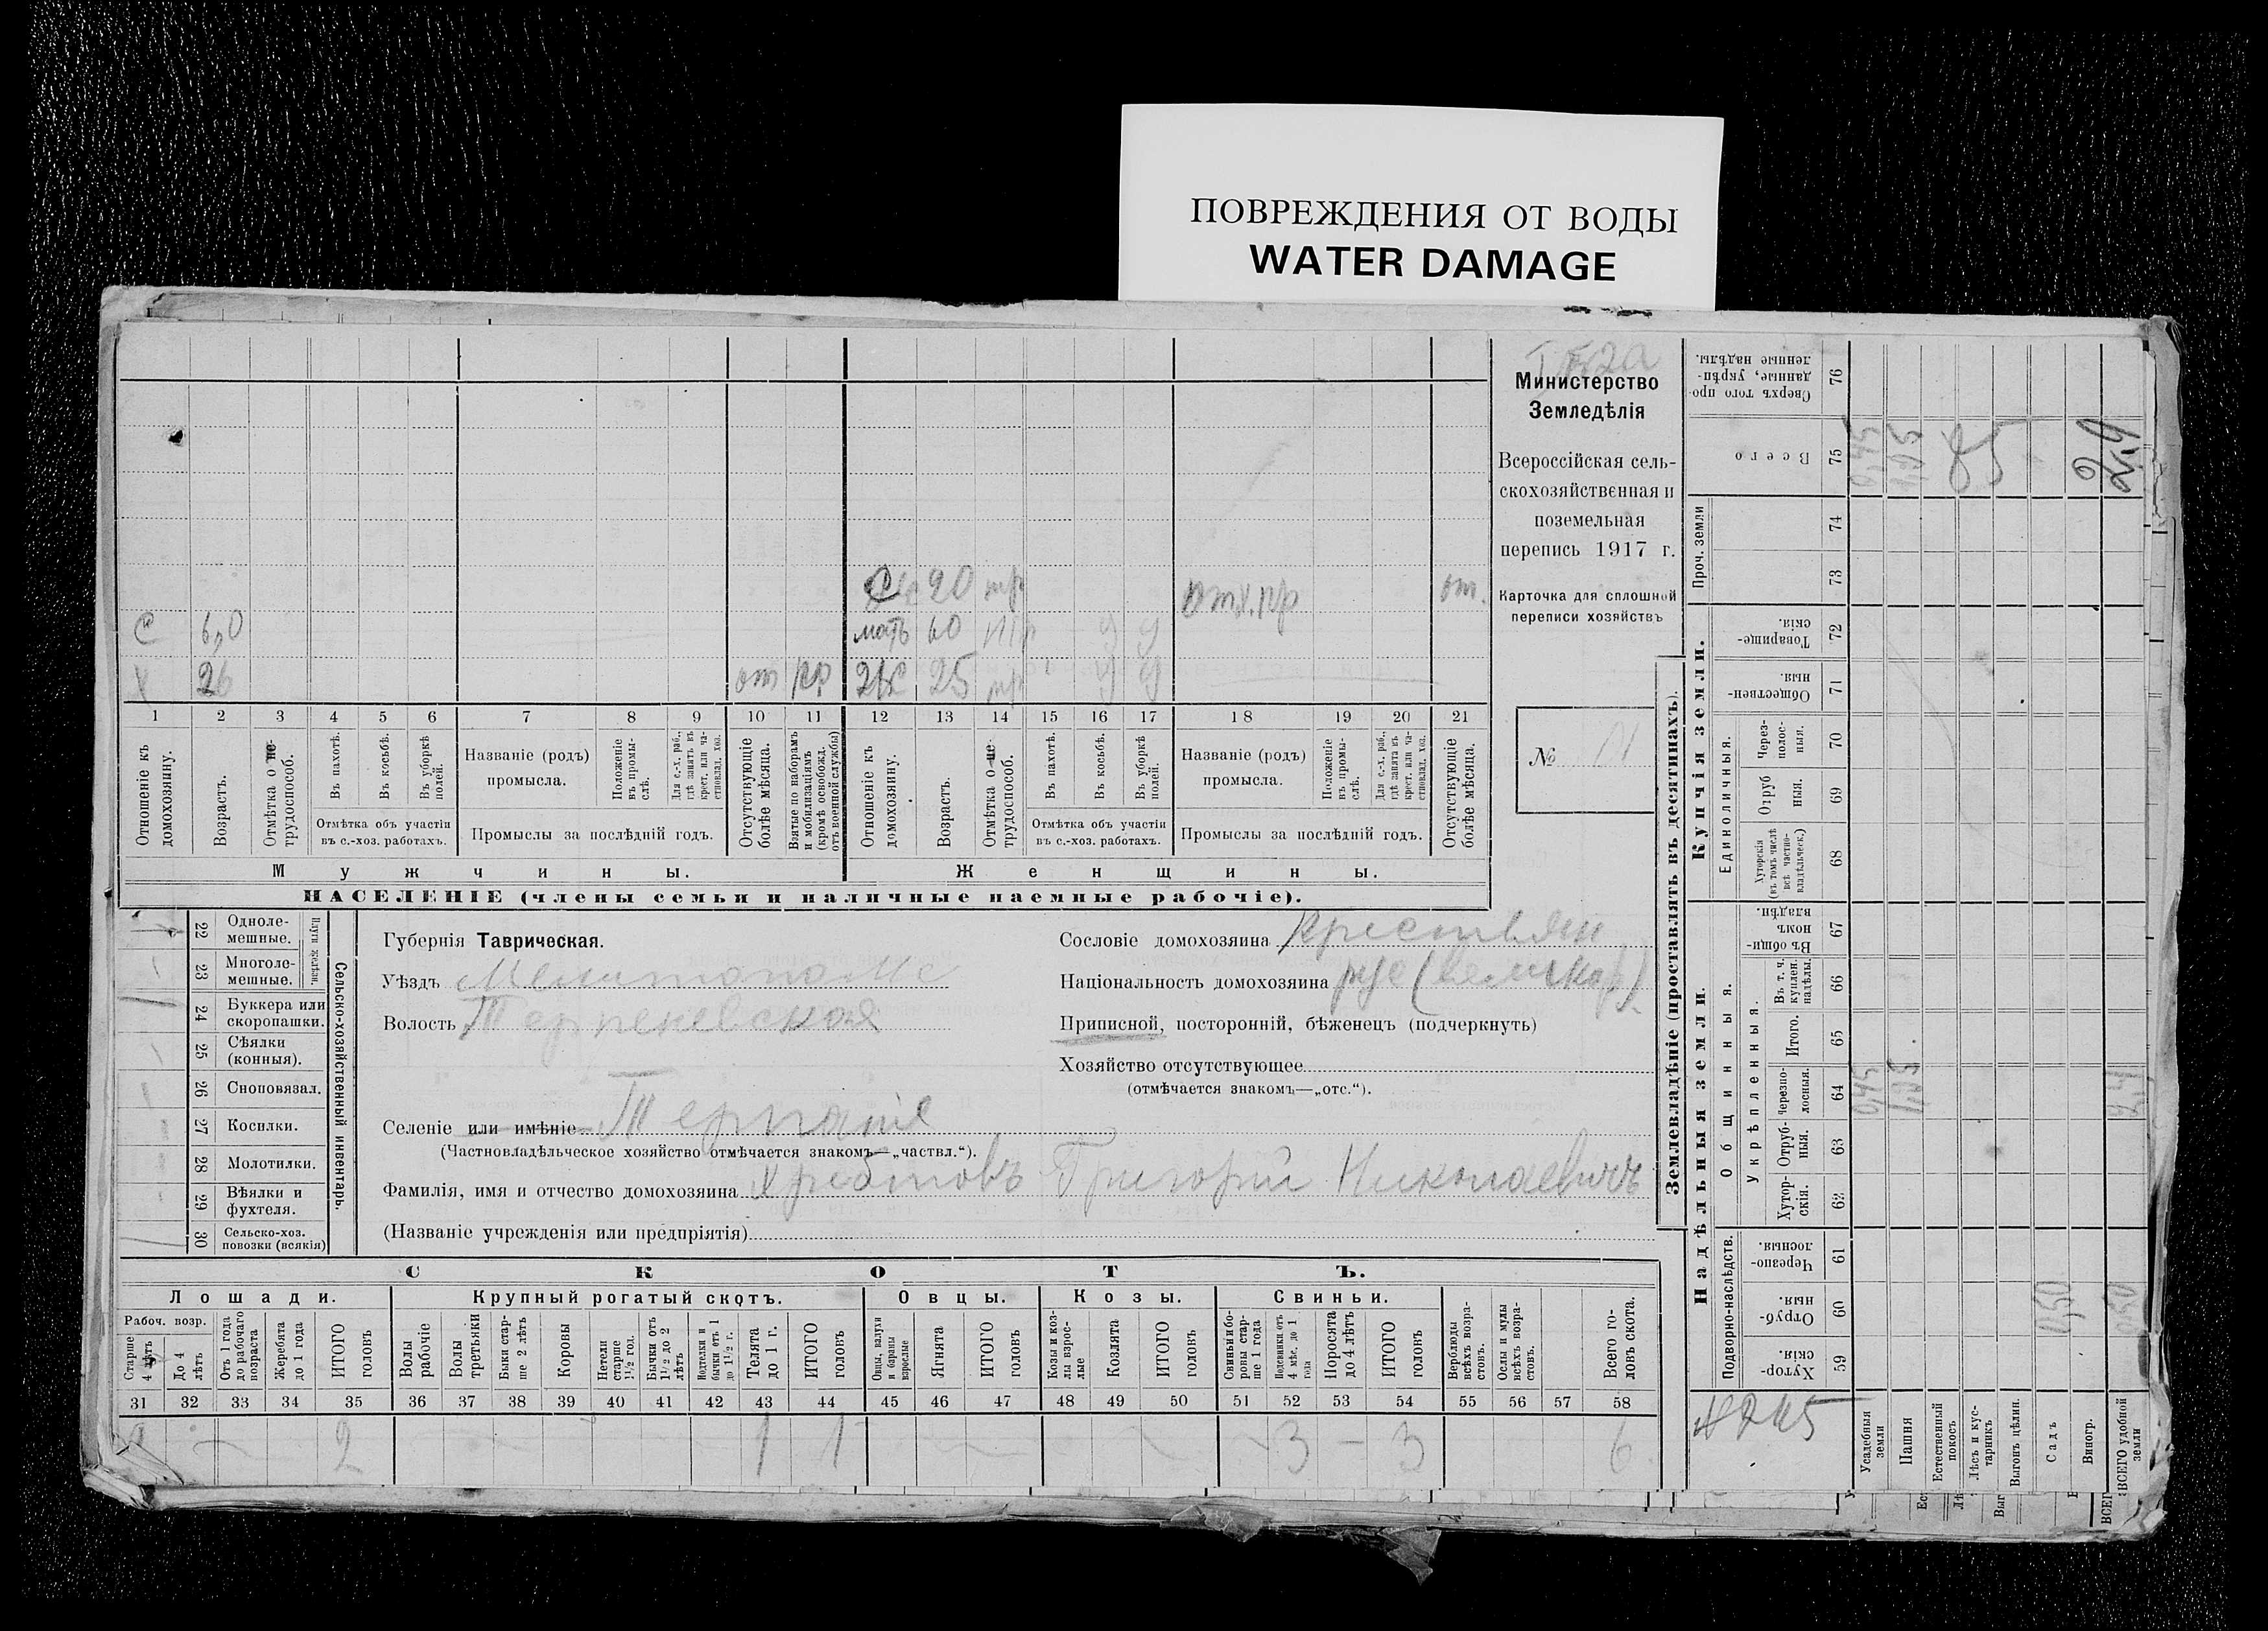 ПОВРЕЖДЕНИЯ ОТ ВОДЫ
WATER DAMAGE
Министерство
Земледѣлія
Всероссійская сель-
скохозяйственная и
поземельная
перепись 1917 г.
Карточка для сплошной
переписи хозяйствъ
№
С 20 тр отх.пр от.
С 6,0 мать 60 у у
х 26 от 25 тр у у
1 2 3 4 5 6 7 8 9 10 11 12 13 14 15 16 17 18 19 20 21
Отношеніе къ домохозяину.
Возрастъ.
Отмѣтка о не-трудоспособ.
Въ пахотѣ.
Въ косьбѣ.
Въ уборкѣ полей.
Отмѣтка объ участіи
въ с.-хоз. работахъ.
Названіе (родъ)
промысла.
Положеніе въ промы-слѣ.
Для с.-х. раб., гдѣ занятъ въ крест. или ча-стновлад. хоз.
Промыслы за послѣдній годъ.
Отсутствующіе болѣе мѣсяца.
Взятые по наборамъ и мобилизаціямъ (кромѣ освобожд. отъ военной службы)
Отношеніе къ домохозяину.
Возрастъ.
Отмѣтка о не-трудоспособ.
Въ пахотѣ.
Въ косьбѣ.
Въ уборкѣ полей.
Отмѣтка объ участіи
въ с.-хоз. работахъ.
Названіе (родъ)
промысла.
Положеніе въ промы-слѣ.
Для с.-х. раб., гдѣ занята въ крест. или ча-стновлад. хоз.
Промыслы за послѣдній годъ.
Отсутствующіе болѣе мѣсяца.
Мужчины. Женщины.
НАСЕЛЕНІЕ (члены семьи и наличные наемные рабочіе).
22 Одноле-мешные.
23 Многоле-мешные.
Плуги желѣзн.
24 Буккера или скоропашки.
25 Сѣялки (конныя).
26 Сноповязал.
27 Косилки.
28 Молотилки.
29 Вѣялки и фухтеля.
30 Сельско-хоз. повозки (всякія)
Сельско-хозяйственный инвентарь.
Губернія Таврическая.
Уѣздъ
Волость
Селеніе или имѣніе Терпѣніе
(Частновладѣльческое хозяйство отмѣчается знакомъ—„частвл.“).
Фамилія, имя и отчество домохозяина Хребтовъ Григорій Николаевичъ
(Названіе учрежденія или предпріятія)
Сословіе домохозяина Крестьян
Національность домохозяина рус (великор.)
Приписной, посторонній, бѣженецъ (подчеркнуть)
Хозяйство отсутствующее
(отмѣчается знакомъ—„отс.“).
СКОТЪ.
Лошади. Крупный рогатый скотъ. Овцы. Козы. Свиньи.
Рабоч. возр.
Старше 4 лѣтъ
До 4 лѣтъ
Отъ 1 года до рабочаго возраста
Жеребята до 1 года
ИТОГО головъ
Волы рабочіе
Волы третьяки
Быки стар-ше 2 лѣтъ
Коровы
Нетели старше 1½ год.
Бычки отъ 1½ до 2 лѣтъ
Подтелки и бычки отъ 1 до 1½ г.
Телята до 1 г.
ИТОГО головъ
Овцы, валухи и бараны взрослые
Ягнята
ИТОГО головъ
Козы и коз-лы взрос-лые
Козлята
ИТОГО головъ
Свиньи и бо-ровы стар-ше 1 года
Подсвинки отъ 4 мѣс. до 1 года
Поросята до 4 лѣтъ
ИТОГО головъ
Верблюды всѣхъ возра-стовъ.
Ослы и мулы всѣхъ возра-стовъ.
Всего го-ловъ скота.
31 32 33 34 35 36 37 38 39 40 41 42 43 44 45 46 47 48 49 50 51 52 53 54 55 56 57 58
2 1 1 3 – 3 6
Землевладѣніе (проставлять въ десятинахъ).
Надѣльныя земли. Купчія земли.
Подворно-наслѣдств.
Общинныя.
Укрѣпленныя.
Единоличныя.
Проч. земли
Хутор-скія. 59
Отруб-ныя. 60
Черезпо-лосныя. 61
Хутор-скія. 62
Отруб-ныя. 63
Черезпо-лосныя. 64
Итого. 65
Въ т. ч. куплен. надѣлы. 66
Въ общи-номъ владѣн. 67
Хуторскія (въ томъ числѣ всѣ частно-владѣльческ.) 68
Отруб ныя. 69
Через-полос-ныя. 70
Обществен-ныя. 71
Товарище-скія. 72
73
74
Всего 75
Сверхъ того про-данные, укрѣп-ленные надѣлы. 76
Усадебныя земли
Пашня
Естественный покосъ
Лѣсъ и кус-тарникъ
Выгонъ цѣлин.
Садъ
Виногр.
ВСЕГО удобной земли